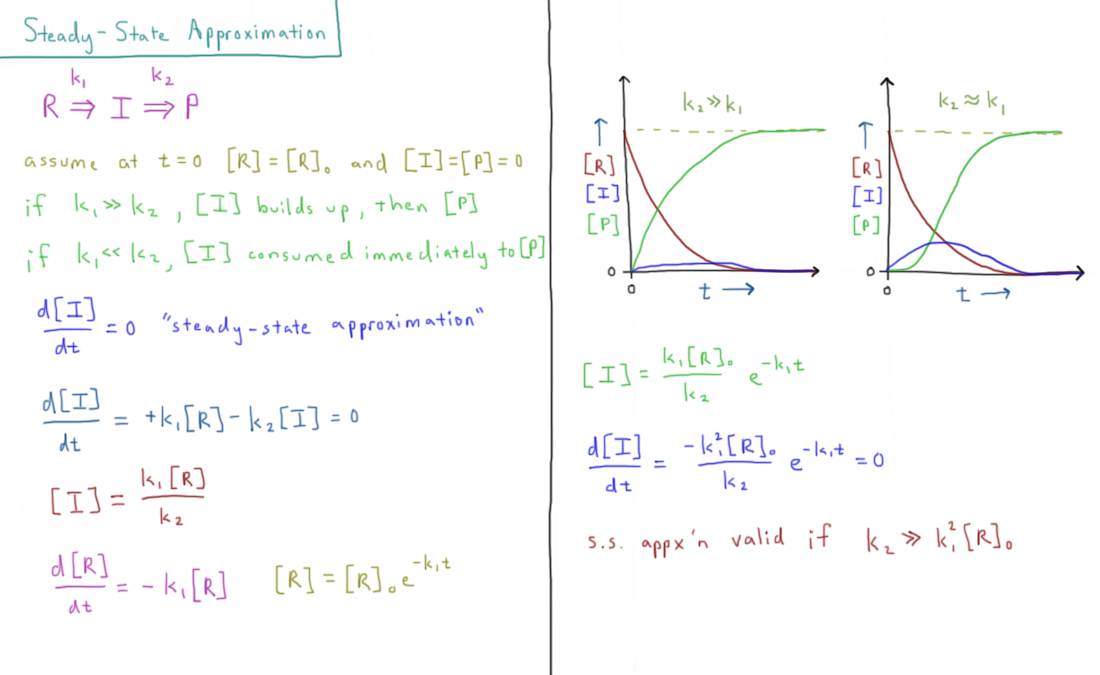 Steady-State Approximation
k₁ k₂
R ⇒ I ⇒ P
assume at t=0 [R]=[R]₀ and [I]=[P]=0
if k₁ ≫ k₂, [I] builds up, then [P]
if k₁ << k₂, [I] consumed immediately to [P]
d[I]/dt = 0 "steady-state approximation"
d[I]/dt = +k₁[R] - k₂[I] = 0
[I] = k₁[R]/k₂
d[R]/dt = -k₁[R] [R] = [R]₀e^-k₁t
k₂ ≫ k₁
↑
[R]
[I]
[P]
0
0
t →
k₂ ≈ k₁
↑
[R]
[I]
[P]
0
0
t →
[I] = k₁[R]₀/k₂ e^-k₁t
d[I]/dt = -k₁²[R]₀/k₂ e^-k₁t = 0
s.s. appx'n valid if k₂ ≫ k₁²[R]₀